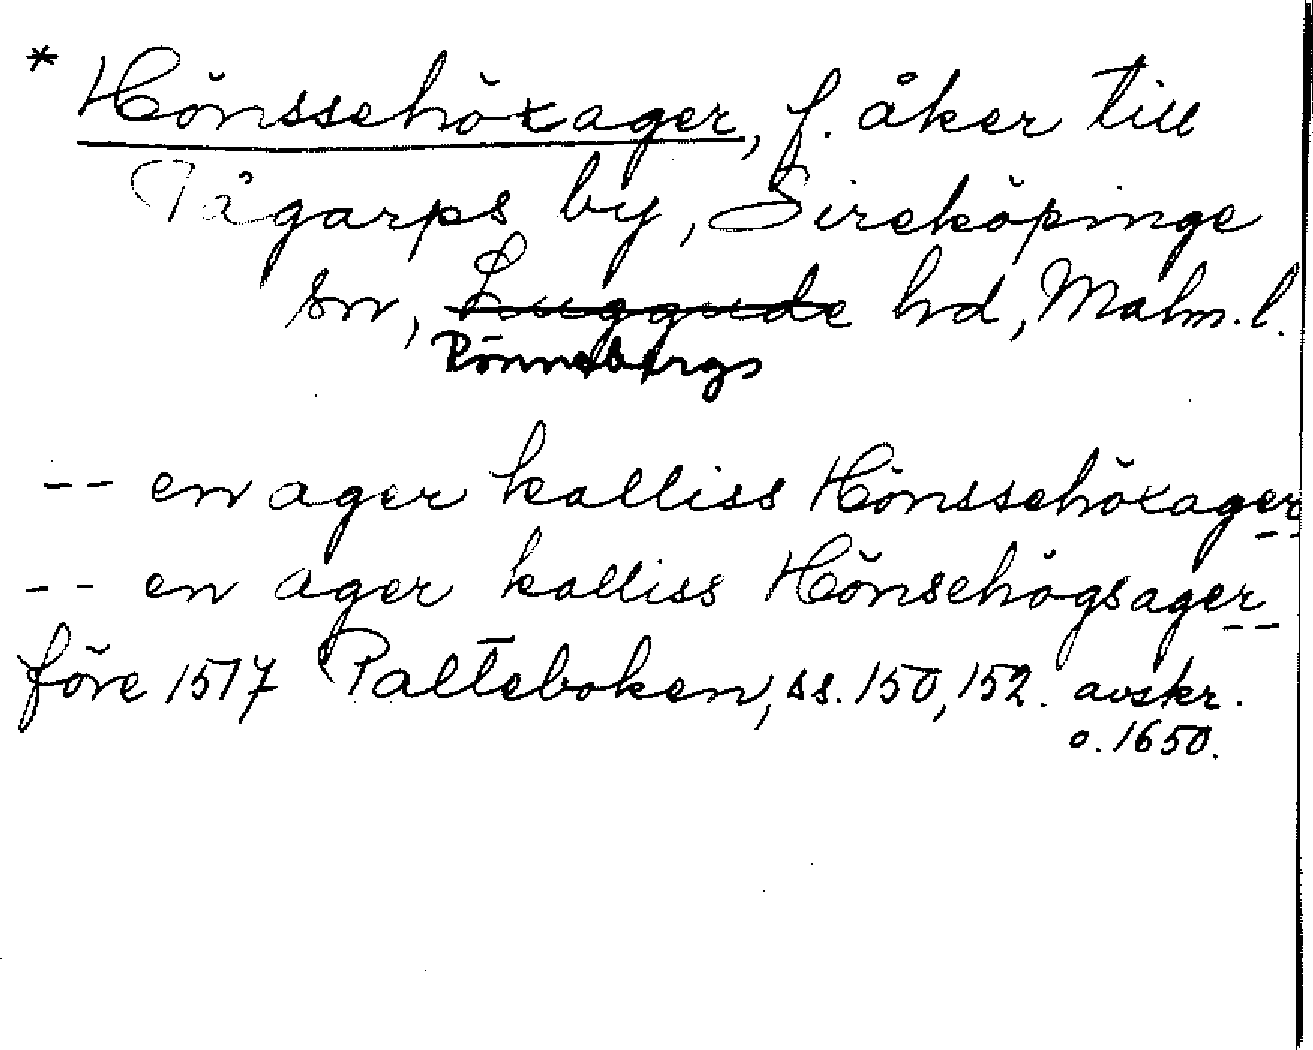 * Hönssehöxager, f. åker till
Tågarps by, Sireköpinge
sn, Luggude hd, Malm. l.
Rönnebergs
-- en ager kalliss Hönssehöxager
--
-- en ager kalliss Hönsehögsager
--
före 1517 Palteboken, ss. 150, 152. avskr.
o. 1650.